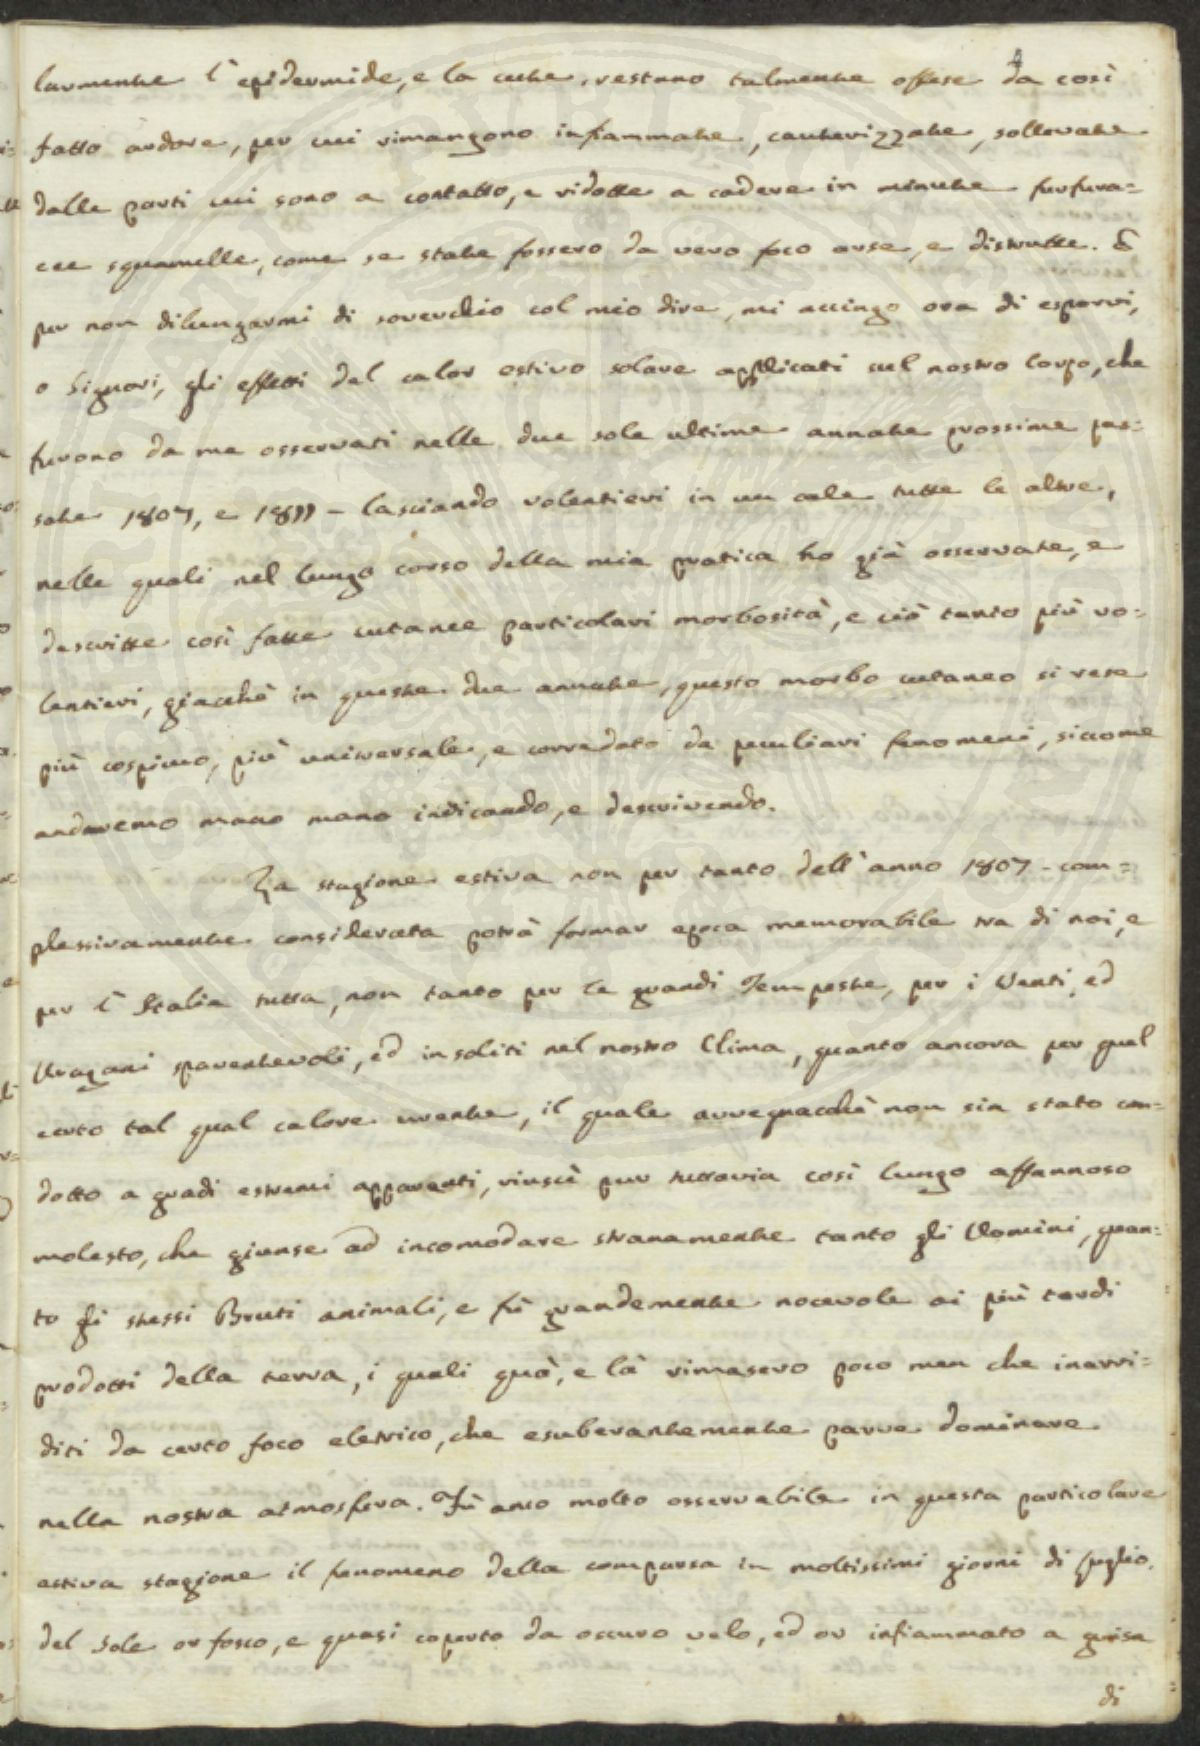 larmente l'epidermide, e la cute, restano talmente offese da così
fatto ardore, per cui rimangono infiammate, cauterizzate, sollevate
dalle parti cui sono a contatto, e ridotte a cadere in minute furfura=
cee squamelle, come se state fossero da vero foco arse, e distrutte. E
per non dilungarmi di soverchio col mio dire, mi accingo ora di esporvi,
o Signori, gli effetti del calor estivo solare applicati sul nostro Corpo, che
furono da me osservati nelle due sole ultime annate prossime pas=
sate 1807, e 1811 - lasciando volentieri in un cale tutte le altre,
nelle quali nel lungo corso della mia pratica ho già osservate, e
descritte così fatte cutanee particolari morbosità, e ciò tanto più vo=
lentieri, giacchè in queste due annate, questo morbo cutaneo si rese
più cospicuo, più universale, e corredato da peculiari fenomeni, siccome
andaremo mano mano indicando, e descrivendo.
La stagione estiva non per tanto dell'anno 1807 - com=
plessivamente considerata potrà formar epoca memorabile tra di noi, e
per l'Italia tutta, non tanto per le grandi Tempeste, per i Venti, ed
Uragani spaventevoli, ed insoliti nel nostro Clima, quanto ancora per quel
certo tal qual calore urente, il quale avvegnacchè non sia stato con=
dotto a gradi estremi apparenti, riuscì pur tuttavia così lungo affannoso
molesto, che giunse ad incomodare stranamente tanto gli Uomini, quan=
to gli stessi Bruti animali, e fù grandemente nocevole ai più tardi
prodotti della terra, i quali quà, e là rimasero poco men che inarri=
diti da certo foco eletrico, che esuberantemente parve dominare
nella nostra atmosfera. Fù anco molto osservabile in questa particolare
estiva stagione il fenomeno della comparsa in moltissimi giorni di Luglio.
del Sole or fosco, e quasi coperto da oscuro velo, ed or infiammato a guisa
di